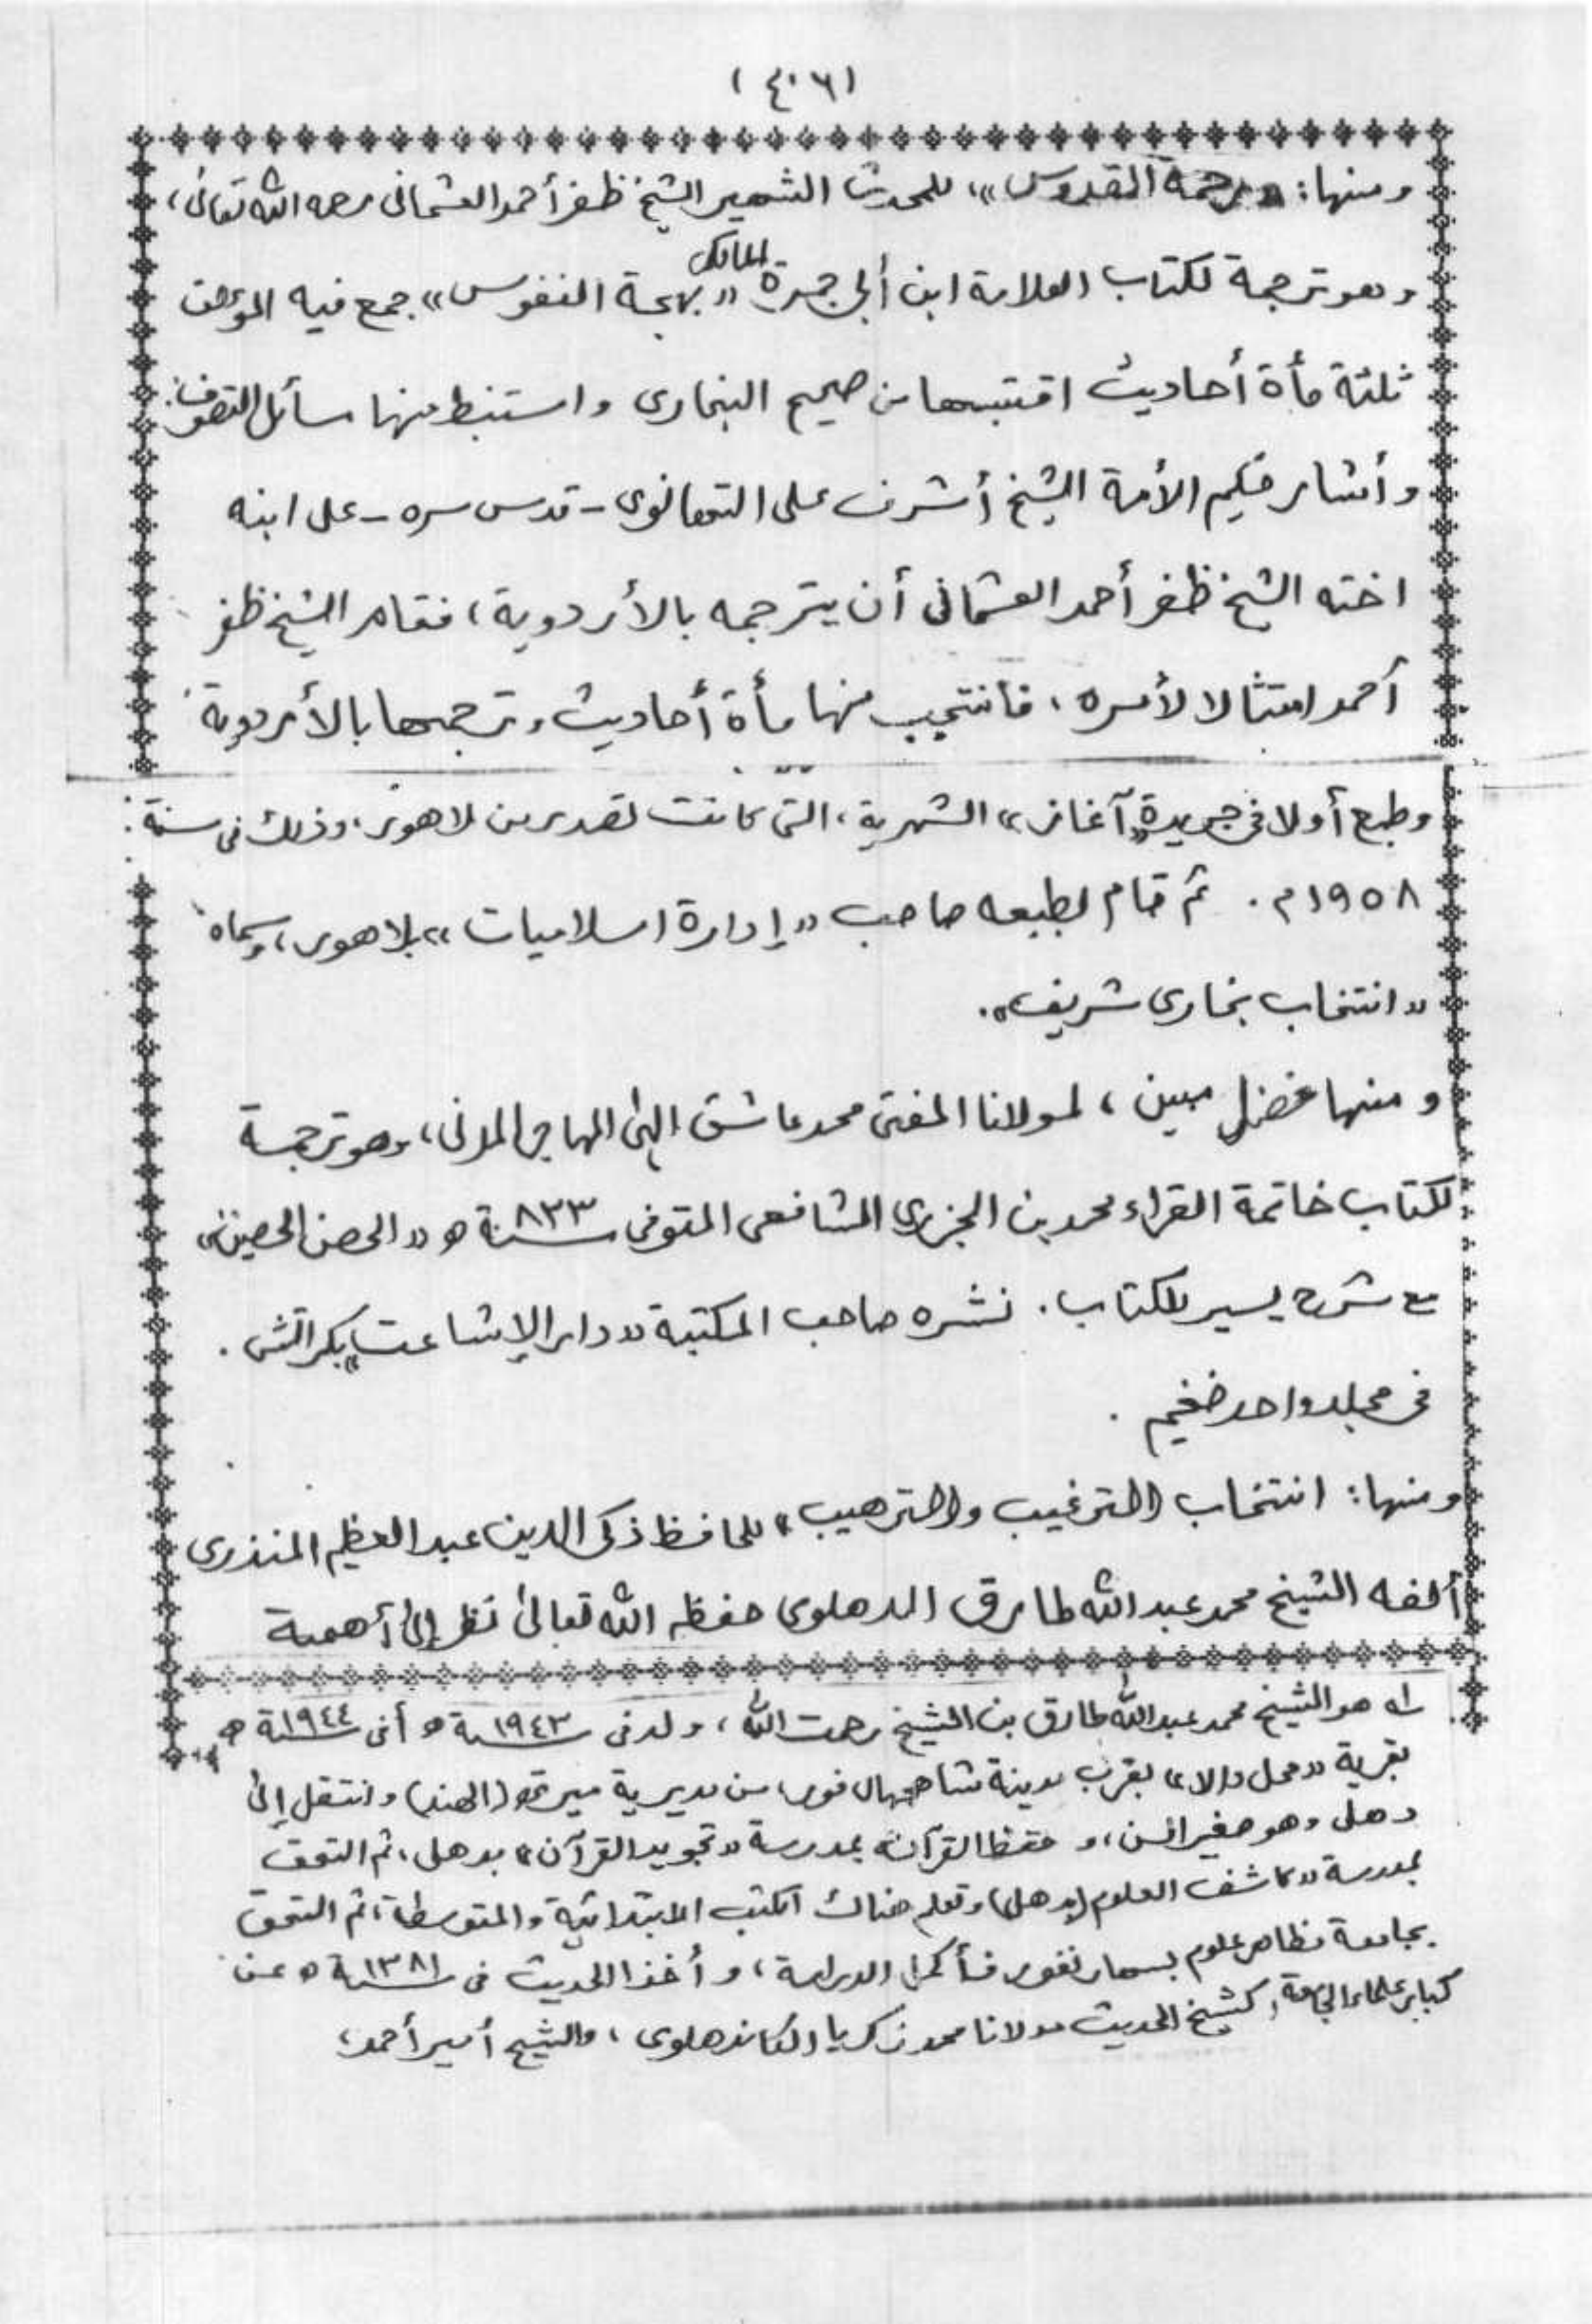 (٤٠٦)
ومنها: «رحمة القدوس»، للمحدث الشهير الشيخ ظفر أحمد العثمانى رحمه الله تعالىٰ،
وهو ترجمة لكتاب العلامة ابن أبى جمرة المالكى «بهجة النفوس» جمع فيه المؤلف
ثلثة مأة أحاديث اقتبسها من صحيح البخارى واستنبط منها مسائل التصوف.
وأشار حكيم الأمة الشيخ أشرف على التهانوى - قدس سره - على ابنه
اخته الشيخ ظفر أحمد العثمانى أن يترجمه بالأردوية، فقام الشيخ ظفر
أحمد امتثالا لأمره، فانتخب منها مأة أحاديث وترجمها بالأردوية
وطبع أولا فى جريدة «آغاز» الشهرية، التى كانت تصدر من لاهور، وذلك فى سنة:
١٩٥٨م. ثم قام بطبعه صاحب «إدارة اسلاميات» بلاهور، وسماه
«انتخاب بخارى شريف».
ومنها فضل مبين، لمولانا المفتى محمد عاشق إلٰهى المهاجر المدنى، وهو ترجمة
لكتاب خاتمة القراء محمد بن الجزرى الشافعى المتوفى سنة ٨٣٣ ه «الحصن الحصين»،
مع شرح يسير للكتاب. نشره صاحب المكتبة «دار الإشاعت» بكراتشى.
فى مجلد واحد ضخيم.
ومنها: انتخاب «الترغيب والترهيب» للحافظ زكى الدين عبد العظيم المنذرى
ألفه الشيخ محمد عبد الله طارق الدهلوى حفظه الله تعالىٰ نظر إلىٰ أهمية
له هو الشيخ محمد عبد الله طارق بن الشيخ رحمت الله، ولد فى سنة ١٩٤٣ ه أفى سنة ١٩٤٤ ه
بقرية «محل والا» بقرب مدينة شاهجهال فور، من مديرية ميرته (الهند) وانتقل إلىٰ
دهلى وهو صغير السن، وحفظ القرآن بمدرسة «تجويد القرآن» بدهلى، ثم التحق
بمدرسة «كاشف العلوم (بدهلى) وتعلم هناك الكتب الابتدائية والمتوسطة، ثم التحق
بجامعة مظاهر علوم بسهارنفور فأكمل الدراسة، وأخذ الحديث فى سنة ١٣٨١ ه عن
كبار علماء الجامعة، كشيخ الحديث مولانا محمد زكريا الكاندهلوى، والشيخ أمير أحمد،